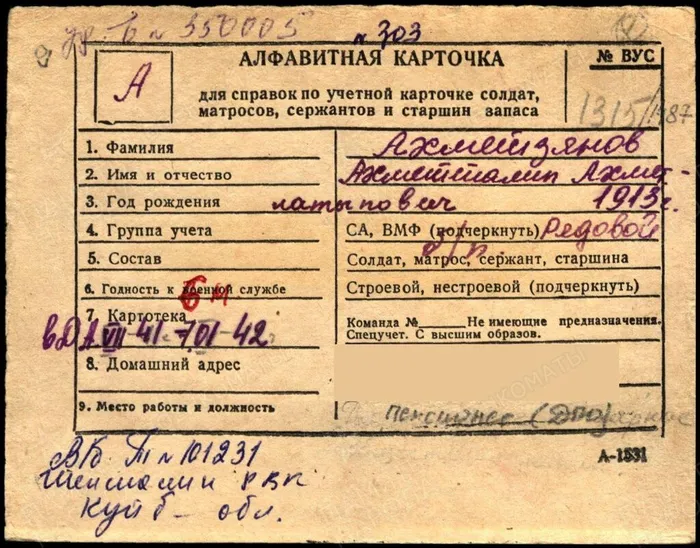 № 350005
№ 303
АЛФАВИТНАЯ КАРТОЧКА
№ ВУС
А
для справок по учетной карточке солдат,
матросов, сержантов и старшин запаса
1315/1987
1. Фамилия Ахметзянов
2. Имя и отчество
3. Год рождения латыпович 1913 г.
4. Группа учета СА, ВМФ (подчеркнуть) Рядовой
5. Состав Солдат, матрос, сержант, старшина
6. Годность к военной службе Строевой, нестроевой (подчеркнуть)
7. Картотека Команда № Не имеющие предназначения.
Спецучет. С высшим образов.
в ДА VII-41-7.01-42
8. Домашний адрес
9. Место работы и должность пенсионер (ДПО)
ВБ Т № 101231
А-1531
РВК
Куйб- обл.